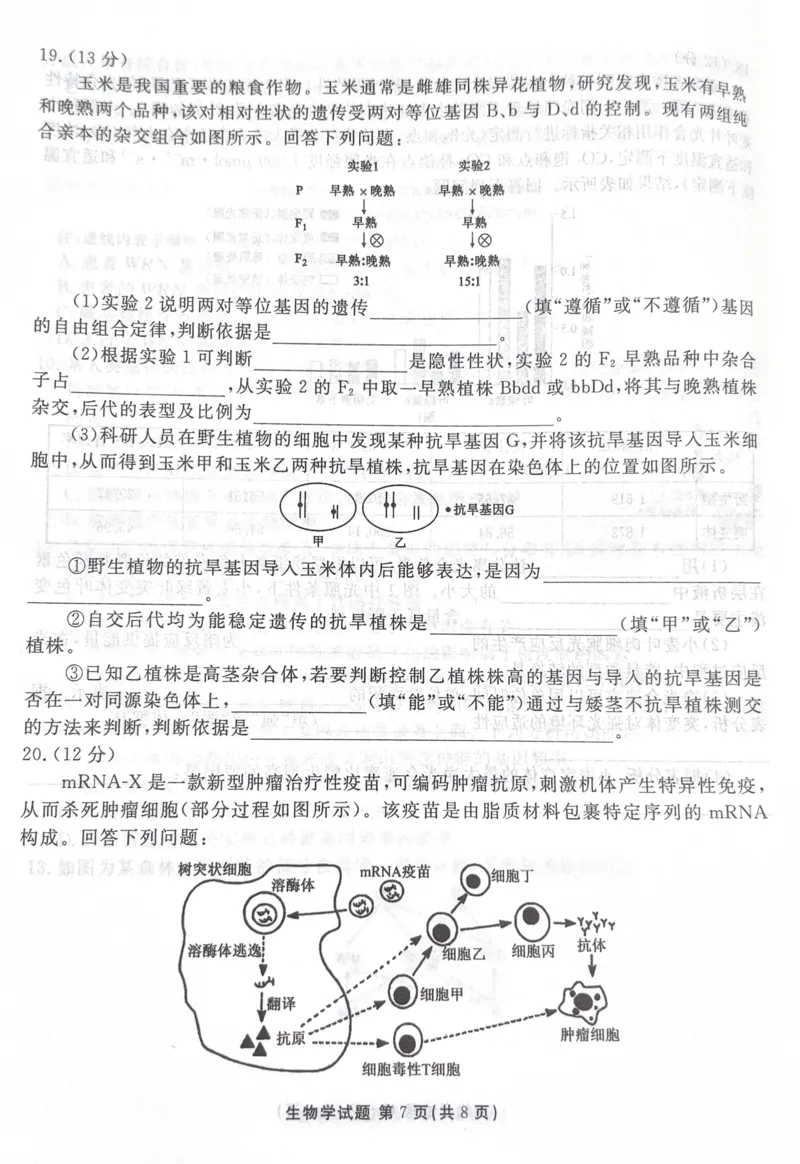 19.(13分)
玉米是我国重要的粮食作物。玉米通常是雌雄同株异花植物,研究发现,玉米有早熟
和晚熟两个品种,该对相对性状的遗传受两对等位基因B、b与D、d的控制。现有两组纯
合亲本的杂交组合如图所示。回答下列问题:
实验1 实验2
P 早熟×晚熟 早熟×晚熟
F₁ 早熟 早熟
F₂ 早熟:晚熟 早熟:晚熟
3:1 15:1
(1)实验2说明两对等位基因的遗传__________(填“遵循”或“不遵循”)基因
的自由组合定律,判断依据是____________________。
(2)根据实验1可判断__________是隐性性状,实验2的F₂早熟品种中杂合
子占__________,从实验2的F₂中取一早熟植株Bbdd或bbDd,将其与晚熟植株
杂交,后代的表型及比例为____________________。
(3)科研人员在野生植物的细胞中发现某种抗旱基因G,并将该抗旱基因导入玉米细
胞中,从而得到玉米甲和玉米乙两种抗旱植株,抗旱基因在染色体上的位置如图所示。
•抗旱基因G
甲 乙
①野生植物的抗旱基因导入玉米体内后能够表达,是因为____________________
____________________。
②自交后代均为能稳定遗传的抗旱植株是__________(填“甲”或“乙”)
植株。
③已知乙植株是高茎杂合体,若要判断控制乙植株株高的基因与导入的抗旱基因是
否在一对同源染色体上,__________(填“能”或“不能”)通过与矮茎不抗旱植株测交
的方法来判断,判断依据是____________________。
20.(12分)
mRNA-X是一款新型肿瘤治疗性疫苗,可编码肿瘤抗原,刺激机体产生特异性免疫,
从而杀死肿瘤细胞(部分过程如图所示)。该疫苗是由脂质材料包裹特定序列的mRNA
构成。回答下列问题:
树突状细胞
溶酶体
mRNA疫苗
细胞丁
溶酶体逃逸
细胞乙
细胞丙
抗体
翻译
细胞甲
抗原
肿瘤细胞
细胞毒性T细胞
生物学试题 第7页(共8页)